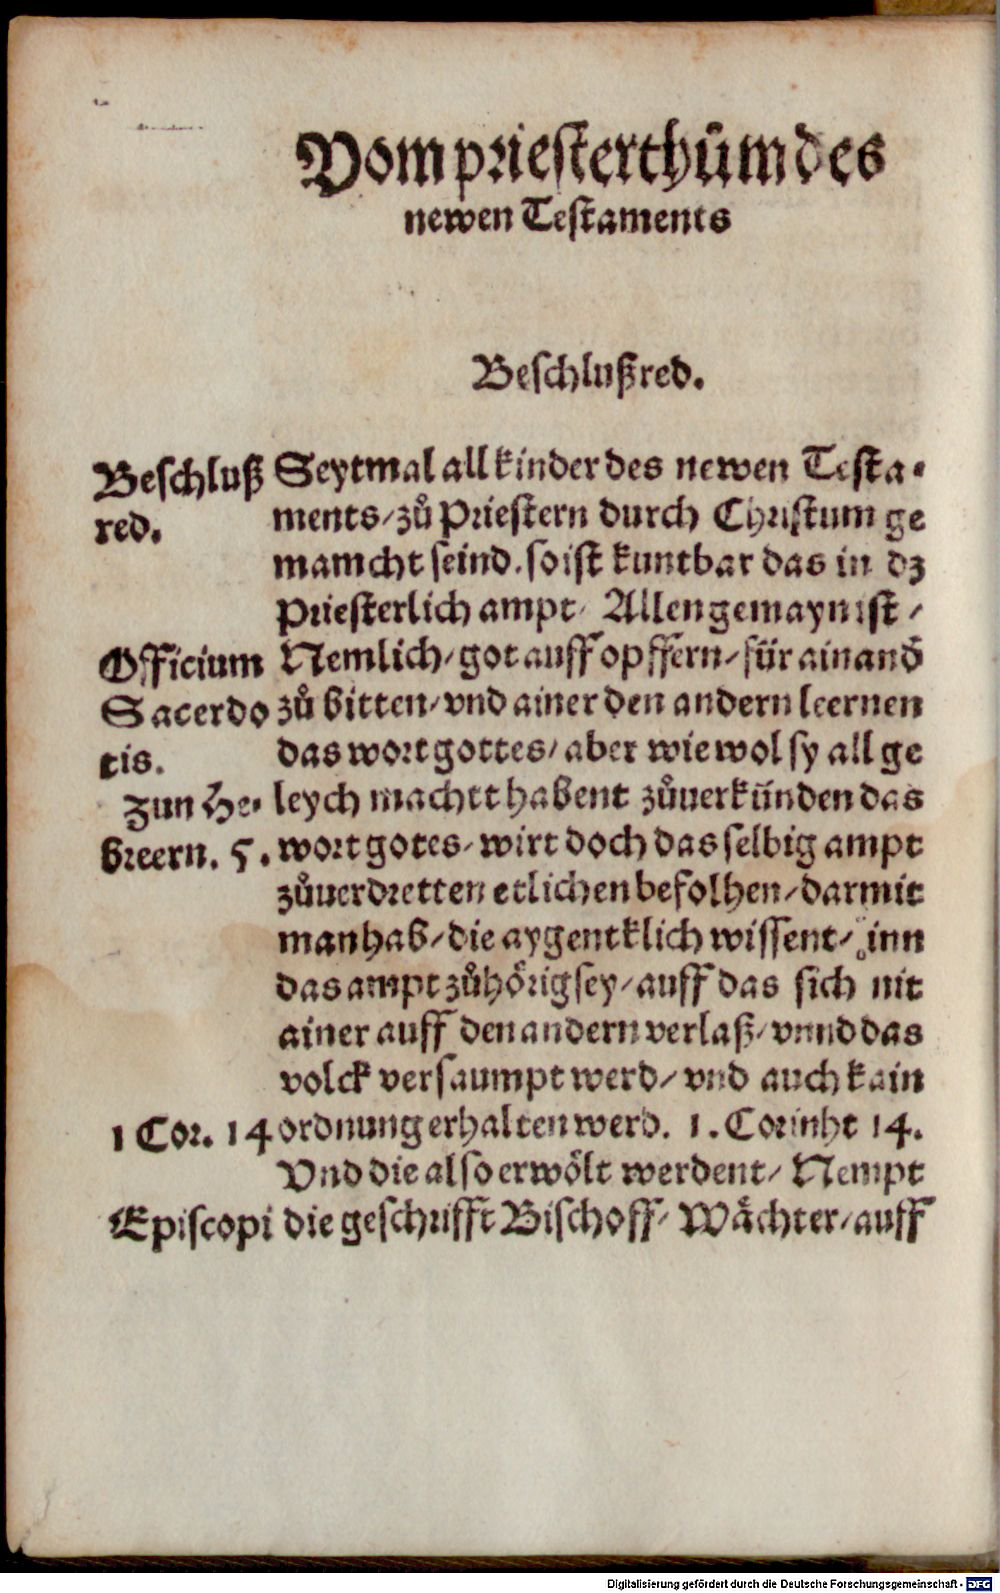 Vom priesterthům des
newen Testaments
Beschlußred.
Beschluß
red.
Seytmal all kinder des newen Testa-
ments/ zů Priestern durch Christum ge
mamcht seind. so ist kuntbar das in dz
Priesterlich ampt/ Allen gemayn ist/
Officium
Sacerdo
tis.
Nemlich/ got auff opffern/ für ainand̄
zů bitten/ vnd ainer den andern leernen
das wort gottes/ aber wie wol sy all ge
Zun He-
breern. 5.
leych machtt habent zůuerkünden das
wort gotes/ wirt doch das selbig ampt
zůuerdretten etlichen befolhen/ darmit
man hab/ die aygentklich wissent/ inn
das ampt zůhörig sey/ auff das sich nit
ainer auff den andern verlaß/ vnnd das
volck versaumpt werd/ vnd auch kain
1 Cor. 14
ordnung erhalten werd. 1. Corinht 14.
Vnd die also erwölt werdent/ Nempt
Episcopi
die geschrifft Bischoff/ Wächter/ auff
Digitalisierung gefördert durch die Deutsche Forschungsgemeinschaft - DFG